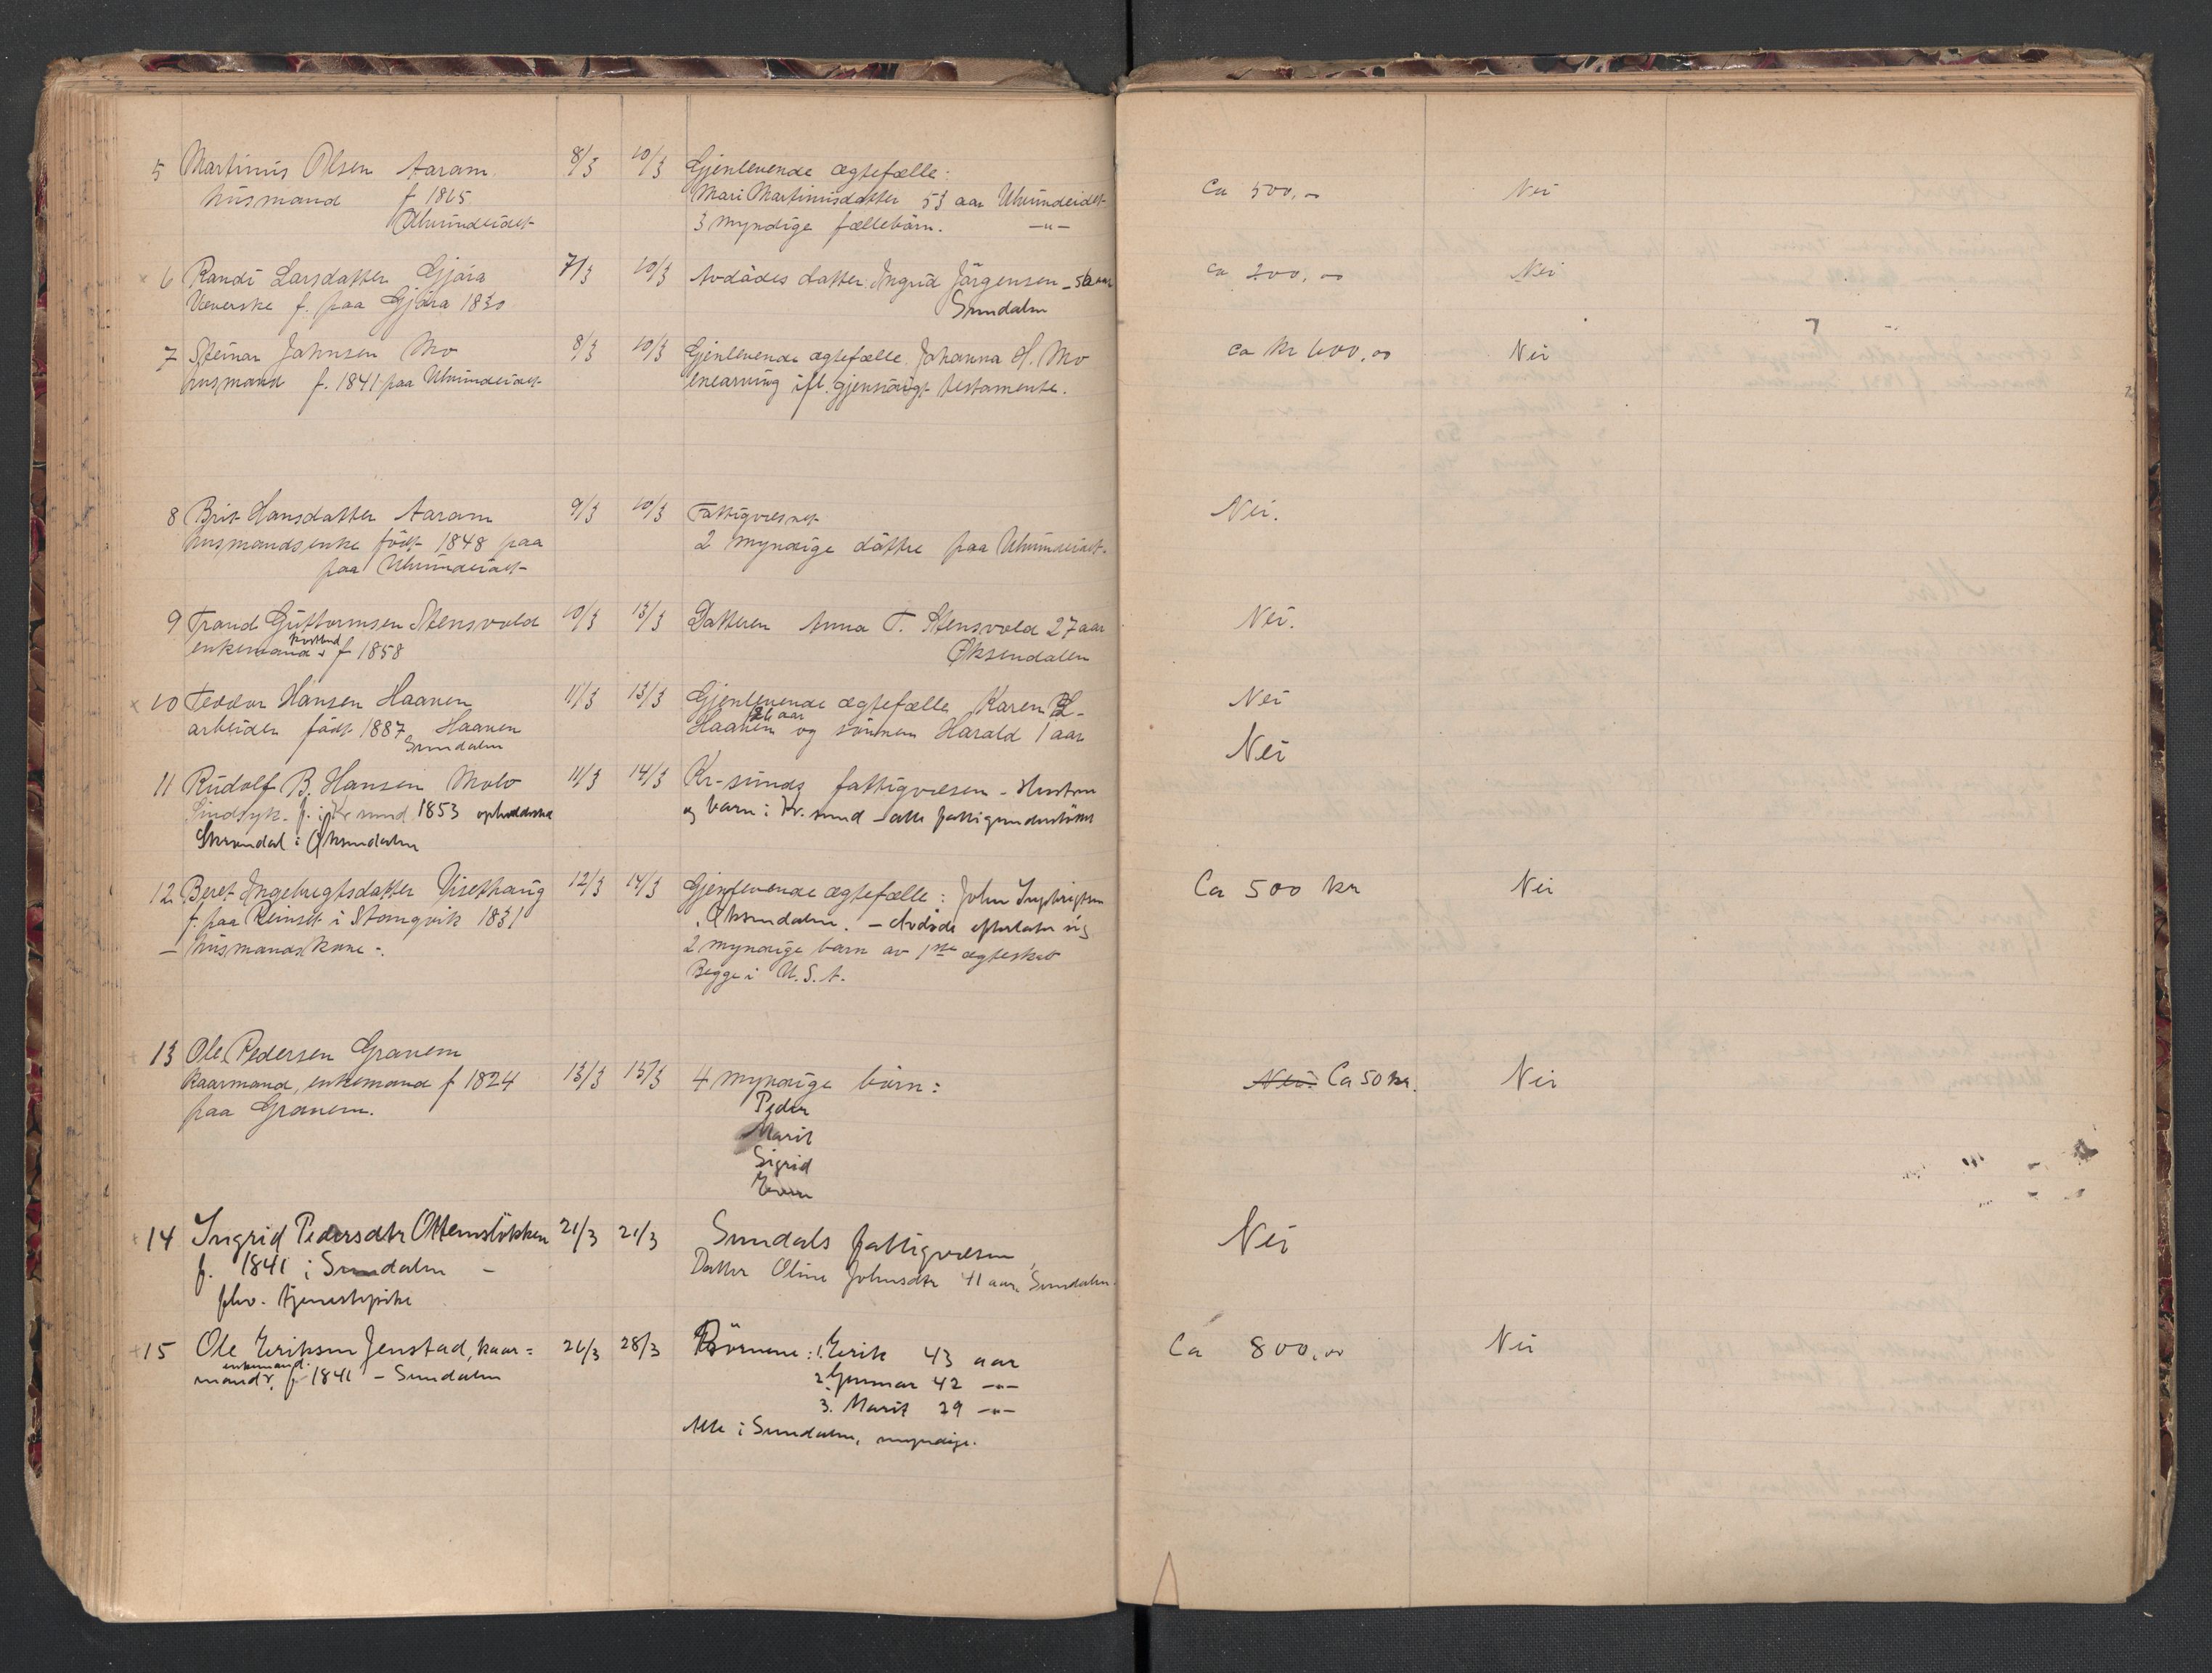 5 Martinus Olsen Aaram 8/3 10/3 Gjenlevende ægtefælle: Ca 500,- Nei
husmand f 1865 Mari Martinusdatter 53 aar Ulvundeidet
Ulvundeidet 3 myndige fællebörn. -"-
× 6 Randi Larsdatter Gjöra 7/3 10/3 Avdödes datter Ingrid Jörgensen - 56 aar ca 200,- Nei
Væverske f. paa Gjöra 1830 Sundalen
7 Steinar Johnsen Mo 8/3 10/3 Gjenlevende ægtefælle Johanna H. Mo ca kr 600,00 Nei
husmand f. 1841 paa Ulvundeidet enearving ifl. gjensidigt testamente.
8 Brit Hansdatter Aaram 9/3 10/3 Fattigvæsnet Nei.
husmandsenke født 1848 paa 2 myndige döttre paa Ulvundeidet.
paa Ulvundeidet
9 Trond Guttormsen Stensvold 10/3 13/3 Datteren Anna T. Stensvold 27 aar Nei.
enkemand f 1858 Øksendalen
× 10 Teodor Hansen Haaven 11/3 13/3 Gjenlevende ægtefælle Karen L- Nei
arbeider födt 1887 Haaven Haaven 26 aar og sönnen Harald 1 aar
Sundalen Nei
11 Rudolf B. Hansen Molv 11/3 14/3 Kr-sunds fattigvæsen - Hustru
Sindsyk. f. i Kr sund 1853 opholdende og barn i Kr. sund - alle fattigunderstöttet
i Øksendalen
12 Beret Ingebrigtsdatter Visethaug 12/3 14/3 Gjenlevende ægtefælle: John Ingebrigtsen Ca 500 kr Nei
f. paa Reinset i Stangvik 1831 i Øksendalen. - Avdöde efterlater sig
- husmandskone -. 2 myndige barn av 1ste ægteskab
Begge i U.S.A.
13 Ole Pedersen Gravem
Kaarmand, enkemand f 1824 13/3 15/3 4 myndige börn: Nei. Ca 50 kr. Nei
paa Gravem. Peder
Marit
Sigrid
14 Ingrid Pedersdtr Ottemslökken 21/3 21/3 Sundals fattigvæsen Nei
f. 1841 i Sundalen - Datter Oline Johnsdtr 41 aar, Sundalen.
fhv. tjenestepike
15 Ole Eriksen Jenstad, kaar= 26/3 28/3 Börnene: 1. Erik 43 aar Ca 800,00 Nei
enkemand
mand, f 1841 - Sundalen 2. Gunnar 42 -"-
3. Marit 29 -"-
Alle i Sundalen, myndige.